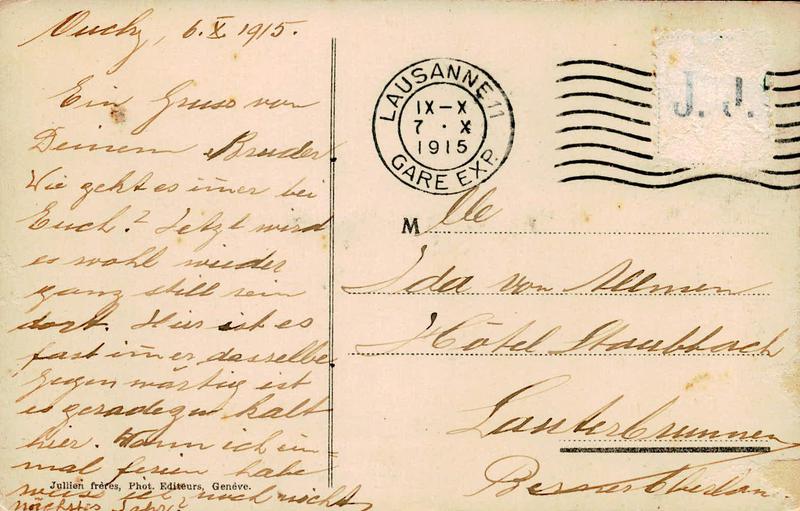 Ouchy, 6. X 1915.
Ein Gruss von
Deinem Bruder
Wie geht es im̄er bei
Euch? Jetzt wird
es wohl wieder
ganz still sein
dort. Hier ist es
fast im̄er dasselbe
gegenwärtig ist
es geradezu kalt
hier. Wann ich ein-
mal ferien habe
weiss ich noch nicht
nächstes Jahr
Jullien frères, Phot. Editeurs, Genève.
LAUSANNE 11
IX–X
7 • X
1915
GARE EXP.
J. J.
Mlle
Ida von Allmen
Hôtel Staubbach
Lauterbrunnen
Berner Oberland